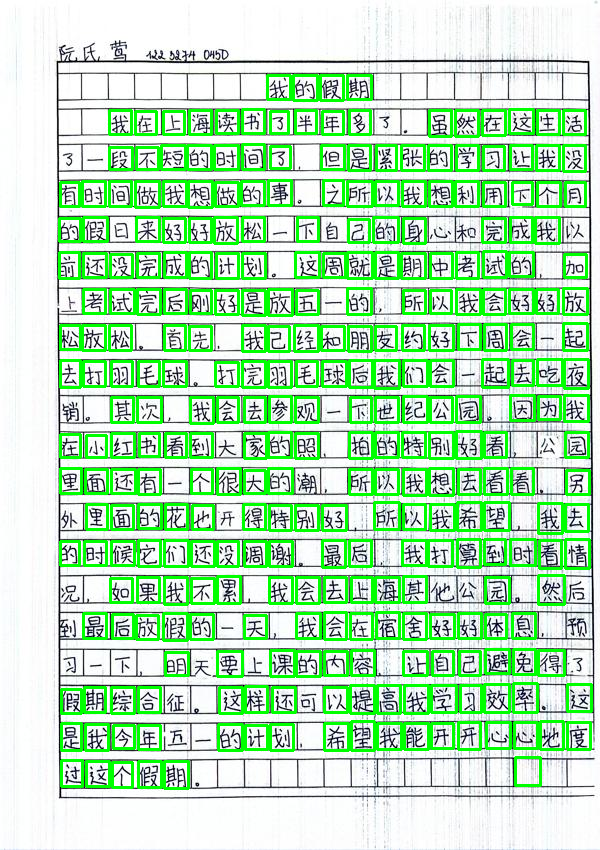 阮氏莺 122 3274 0450
我的假期
我在上海读书了半年多了。虽然在这生活
了一段不短的时间了,但是紧张的学习让我没
有时间做我想做的事。之所以我想利用下个月
的假日来好好放松一下自己的身心和完成我以
前还没完成的计划。这周就是期中考试的,加
上考试完后刚好是放五一的,所以我会好好放
松放松。首先,我己经和朋友约好下周会一起
去打羽毛球。打完羽毛球后我们会一起去吃夜
销。其次,我会去参观一下世纪公园。因为我
在小红书看到大家的照,拍的特别好看,公园
里面还有一个很大的潮,所以我想去看看。另
外里面的花也开得特别好,所以我希望,我去
的时候它们还没凋谢。最后,我打算到时看情
况,如果我不累,我会去上海其他公园。然后
到最后放假的一天,我会在宿舍好好体息,预
习一下,明天要上课的内容,让自己避免得了
假期综合征。这样还可以提高我学习效率。这
是我今年五一的计划,希望我能开开心心地度
过这个假期。